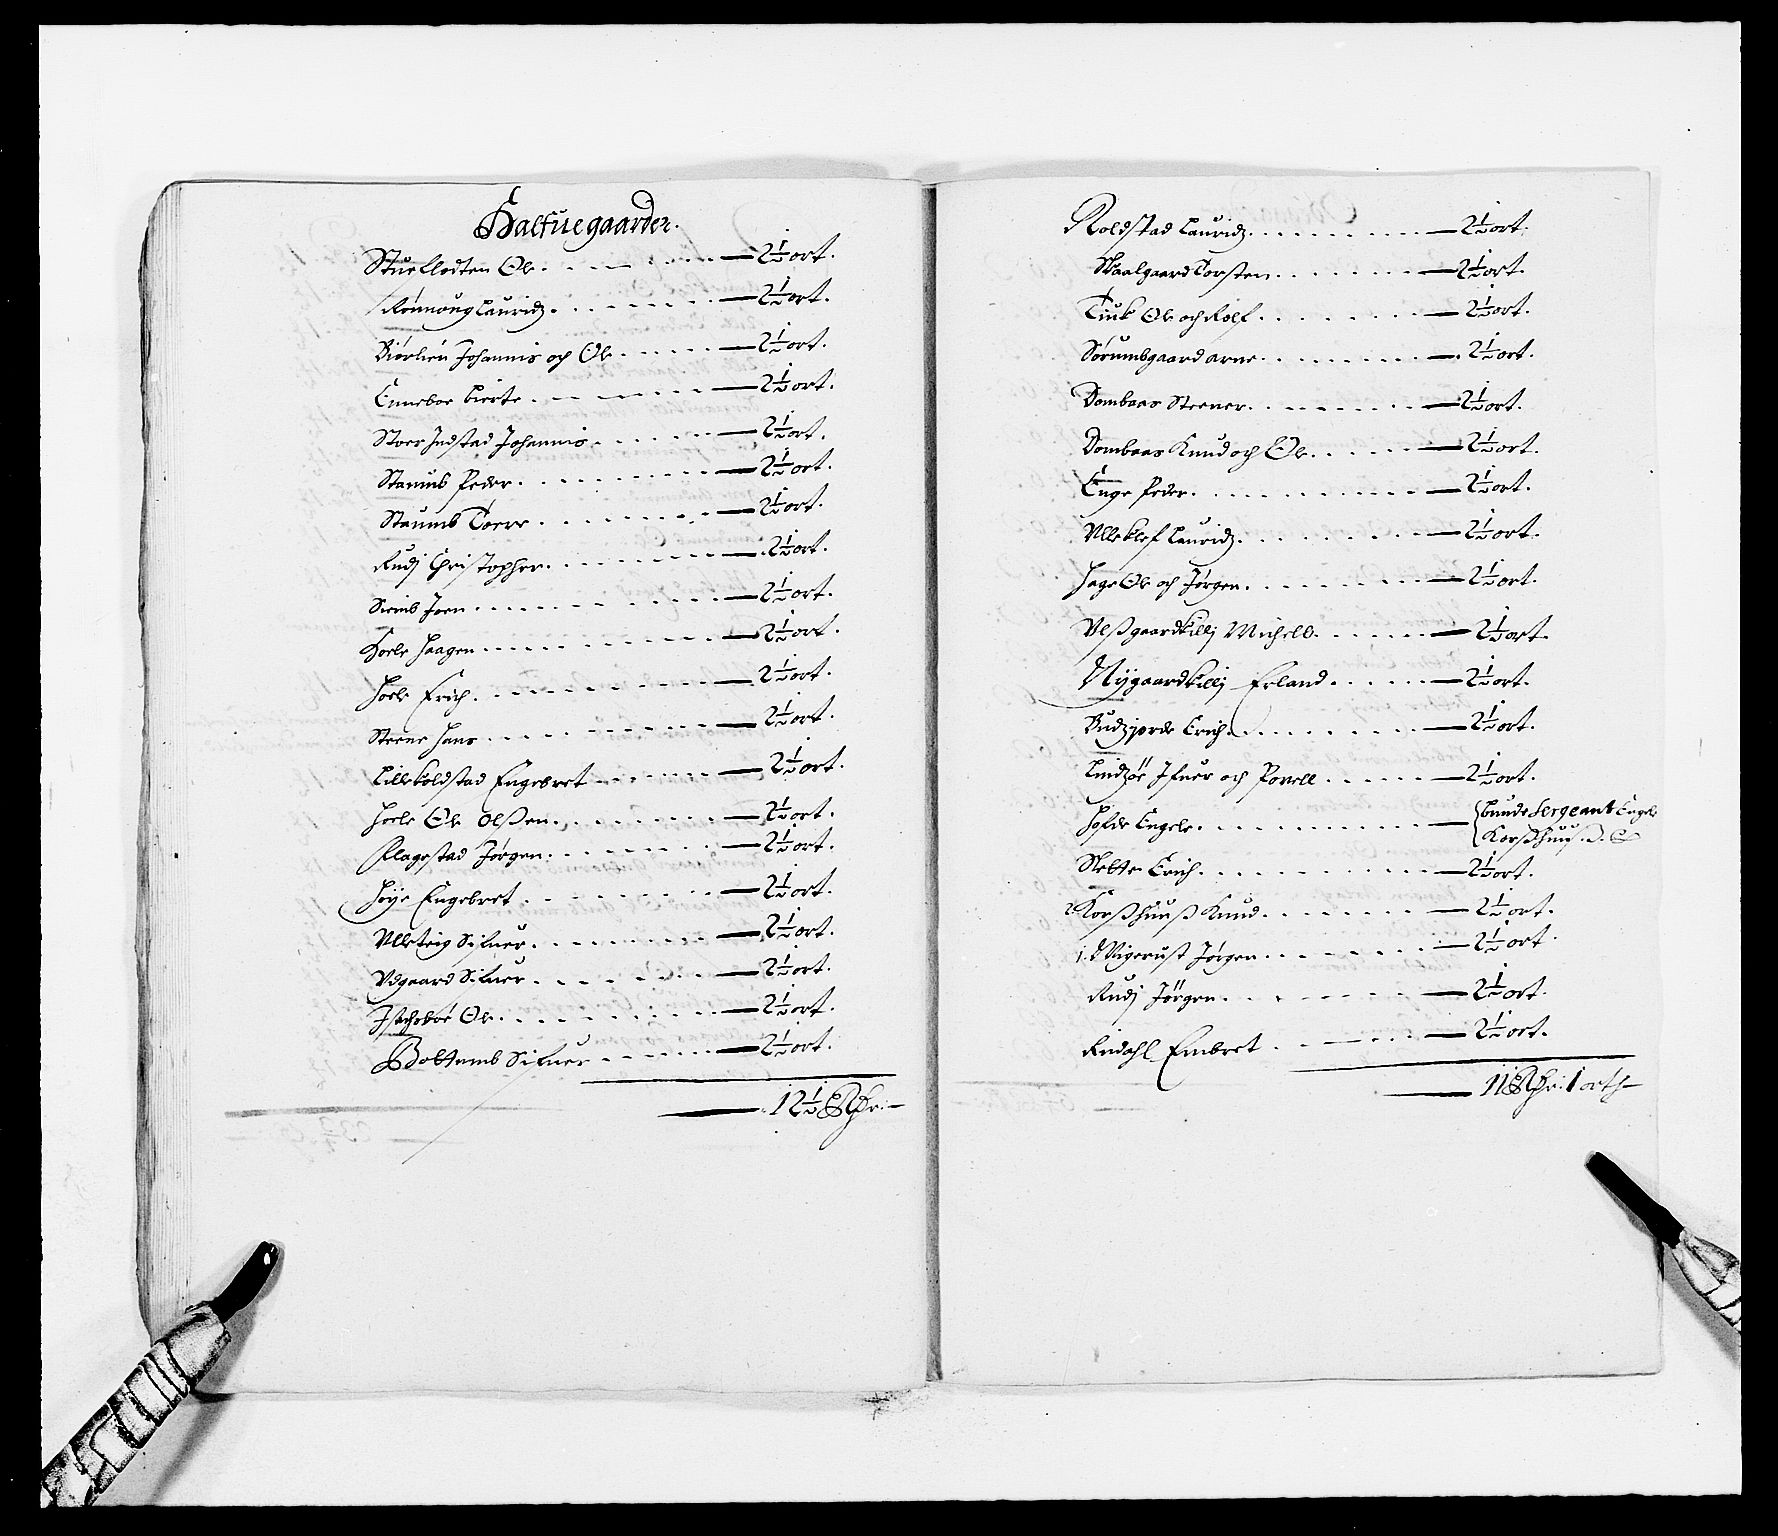 Halfuegaarder.
Stueflodten Ole. 2½ ort.
Rönnoug Lauridz. 2½ ort.
Biörlien Johannis och Ole. 2½ ort.
Enneboe Bierte. 2½ ort.
Stoer Indstad Johannis. 2½ ort.
Staumb Peder. 2½ ort.
Staumb Toere. 2½ ort.
Rudj Christopher. 2½ ort.
Siemb Joen. 2½ ort.
Hoele Haagen. 2½ ort.
Hoele Erich. 2½ ort.
Steene Hans. 2½ ort.
Lille Koldstad Engebret. 2½ ort.
Hoele Ole Olßen. 2½ ort.
Flagestad Jørgen. 2½ ort.
Høye Engebret. 2½ ort.
Ulletrig Sifuer. 2½ ort.
Udgaard Sifuer. 2½ ort.
Ole. 2½ ort.
Bottemb Sifuer. 2½ ort.
12½ Rdr:
Koldstad Lauridz. 2½ ort.
Skaalgaard Torsten. 2½ ort.
Tiuk Ole och Rolf. 2½ ort.
Sörumbgaard Arne. 2½ ort.
Dombaas Steener. 2½ ort.
Dombaas Knud och Ole. 2½ ort.
Enge Peder. 2½ ort.
Ulleklef Lauridz. 2½ ort.
Hage Ole och Jørgen. 2½ ort.
Ulßgaardkillj Michell. 2½ ort.
Nÿgaardkillj Erland. 2½ ort.
Budzjorde Erich. 2½ ort.
Lindzöe Ifuer och Povell. 2½ ort.
Hofde Engele. bunde Sergeant Engele
Korßhuuß.
Slette Erich. 2½ ort.
Korßhuuß Knud. 2½ ort.
Vigerust Jørgen. 2½ ort.
Rudj Jörgen. 2½ ort.
Rindahl Embret. 2½ ort.
11 Rdr: 1 orth